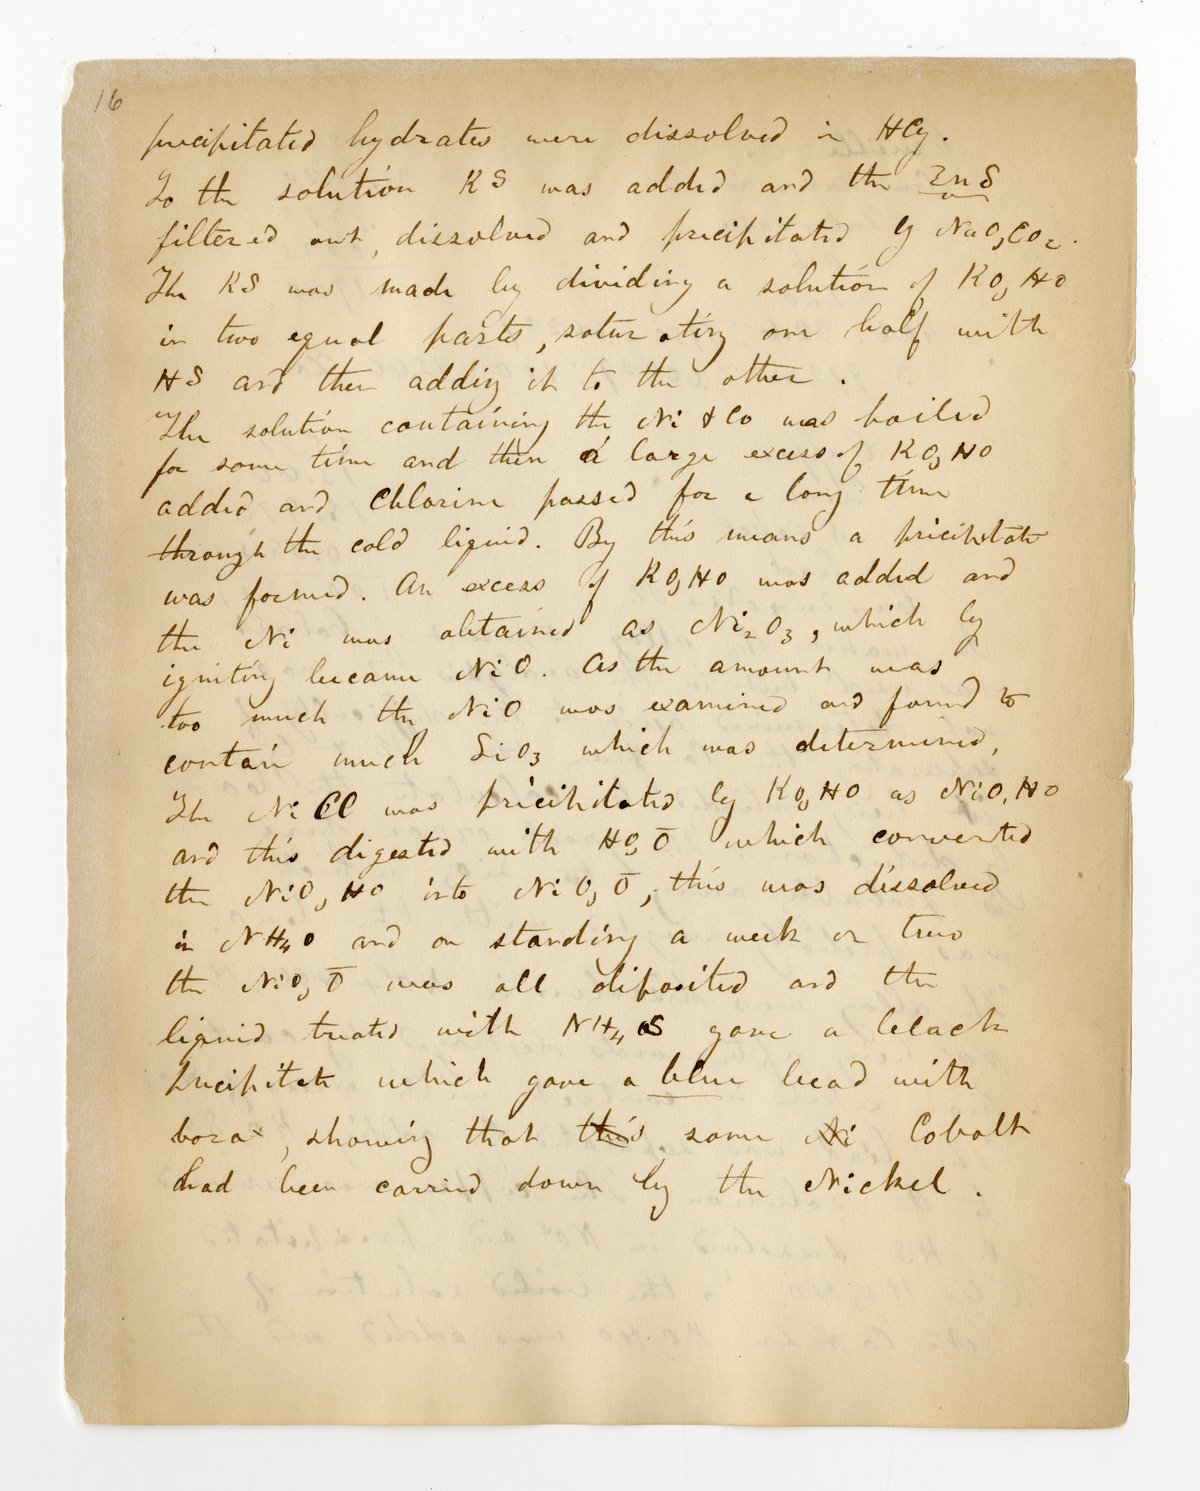 16
precipitated hydrates were dissolved in HCy.
To the solution KS was added and the ZnS
filtered out, dissolved and precipitated by NaO,CO2.
The KS was made by dividing a solution of KO,HO
in two equal parts, saturating one half with
HS and then adding it to the other.
The solution containing the Ni & Co was boiled
for some time and then a large excess of KO,HO
added and Chlorine passed for a long time
through the cold liquid. By this means a precipitate
was formed. An excess of KO,HO was added and
the Ni was obtained as Ni2O3, which by
igniting became NiO. As the amount was
too much the NiO was examined and found to
contain much SiO3 which was determined,
The NiCl was precipitated by KO,HO as NiO,HO
and this digested with HO,Ō which converted
the NiO,HO into NiO,Ō, this was dissolved
in NH4O and on standing a week or two
the NiO,Ō was all deposited and the
liquid treated with NH4S gave a black
precipitate which gave a blue bead with
borax, showing that this some Ni Cobalt
had been carried down by the Nickel.